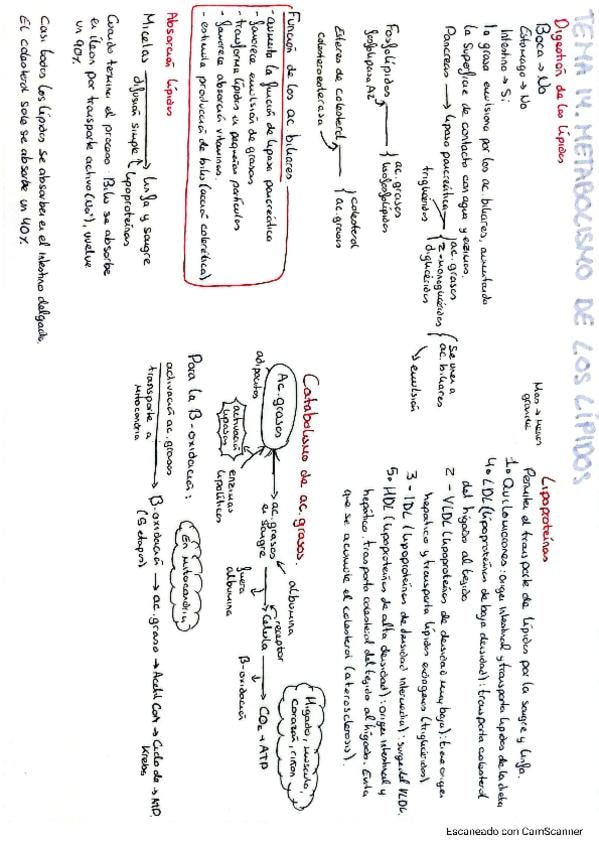 TEMA 14. METABOLISMO DE LOS LÍPIDOS
Digestión de los lípidos
Boca → No
Estómago → No
Intestino → Sí
la grasa emulsiona por los ac. biliares, aumentando
la superficie de contacto con agua y enzimas.
Páncreas → lipasa pancreática
triglicéridos
ac. grasos
2-monoglicéridos
diglicéridos
Se unen a
ac. biliares
emulsión
Fosfolípidos
fosfolipasa A2
ac. grasos
lisofosfolípidos
Esteres de colesterol
colesterolesterasa
colesterol
ac. grasos
Función de los ac. biliares
- aumenta la función de lipasa pancreática
- favorece emulsión de grasas
- transforma lípidos en pequeñas partículas
- favorece absorción vitaminas.
- estimula producción de bilis (acción colerética)
Absorción lípidos
Micelas
difusión simple
linfa y sangre
lipoproteínas
Cuando termina el proceso: Bilis se absorbe
en íleon por transporte activo (Na+), vuelve
un 90%.
Casi todos los lípidos se absorben en el intestino delgado.
El colesterol solo se absorbe un 40%.
Mas → menor
grande
Lipoproteínas
Permiten el transporte de lípidos por la sangre y linfa.
1. Quilomicrones: origen intestinal y transporta lípidos de la dieta
4. LDL (lipoproteínas de baja densidad): transporta colesterol
del hígado al tejido
2 - VLDL (lipoproteínas de densidad muy baja): tiene origen
hepático y transporta lípidos exógenos (triglicéridos)
3 - IDL (lipoproteínas de densidad intermedia): surge del VLDL
5. HDL (lipoproteínas de alta densidad): origen intestinal y
hepático, transporta colesterol del tejido al hígado. Evita
que se acumule el colesterol (aterosclerosis).
Catabolismo de ac. grasos.
Ac. grasos
adipocitos
activación
lipasas
enzimas
lipolíticos
ac. grasos
en sangre
albúmina
fuera
albúmina
receptor
Célula
β-oxidación
CO2 + ATP
Hígado, músculo,
corazón, riñón
Para la β-oxidación:
En mitocondria
activación ac. grasos
transporte a
mitocondria
β-oxidación
(5 etapas)
→ ac. graso → Acetil CoA → Ciclo de
Krebs
Escaneado con CamScanner